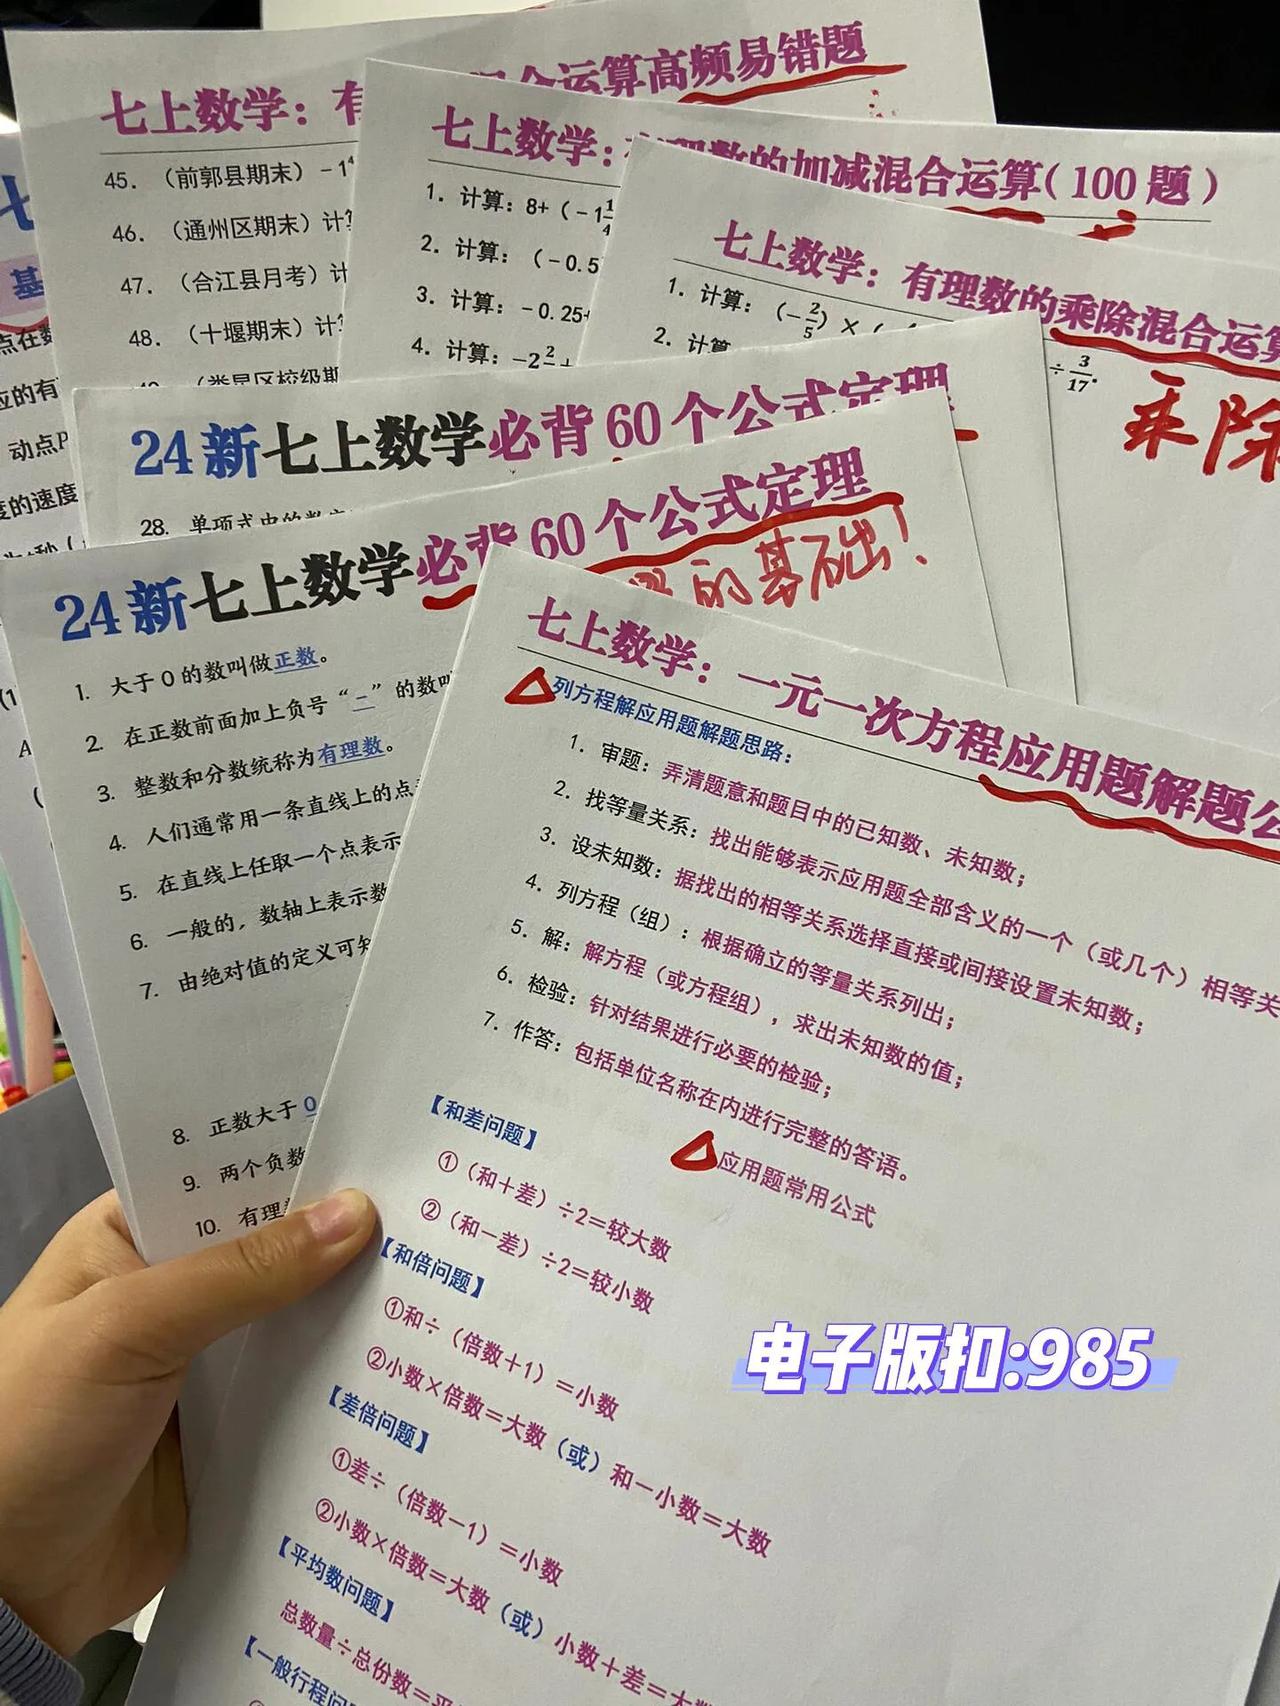 七上数学：有
混合运算高频易错题
45. （前郭县期末）－1⁴
46. （通州区期末）计算
47. （合江县月考）计
48. （十堰期末）计算
七上数学：有理数的加减混合运算（100 题）
1. 计算：8+（－1 1/4
2. 计算：（－0.5
3. 计算：－0.25
4. 计算：－2
七上数学：有理数的乘除混合运算
1. 计算：（－2/5）×（
2. 计算
÷ 3/17.
乘除
基
点在数
应的有
动点P
度的速度
24 新七上数学必背 60 个公式定理
28. 单项式中的数
24 新七上数学必背 60 个公式定理
的基础！
1. 大于 0 的数叫做正数。
2. 在正数前面加上负号“－”的数叫
3. 整数和分数统称为有理数。
4. 人们通常用一条直线上的点
5. 在直线上任取一个点表示
6. 一般的，数轴上表示数
7. 由绝对值的定义可知
8. 正数大于 0
9. 两个负数
10. 有理
七上数学：一元一次方程应用题解题公
列方程解应用题解题思路：
1. 审题：弄清题意和题目中的已知数、未知数；
2. 找等量关系：找出能够表示应用题全部含义的一个（或几个）相等关
3. 设未知数：据找出的相等关系选择直接或间接设置未知数；
4. 列方程（组）：根据确立的等量关系列出；
5. 解：解方程（或方程组），求出未知数的值；
6. 检验：针对结果进行必要的检验；
7. 作答：包括单位名称在内进行完整的答语。
应用题常用公式
【和差问题】
①（和＋差）÷2＝较大数
②（和－差）÷2＝较小数
【和倍问题】
①和÷（倍数＋1）＝小数
②小数×倍数＝大数（或）和－小数＝大数
【差倍问题】
①差÷（倍数－1）＝小数
②小数×倍数＝大数（或）小数＋差＝大数
【平均数问题】
总数量÷总份数＝平
【一般行程问
电子版扣:985